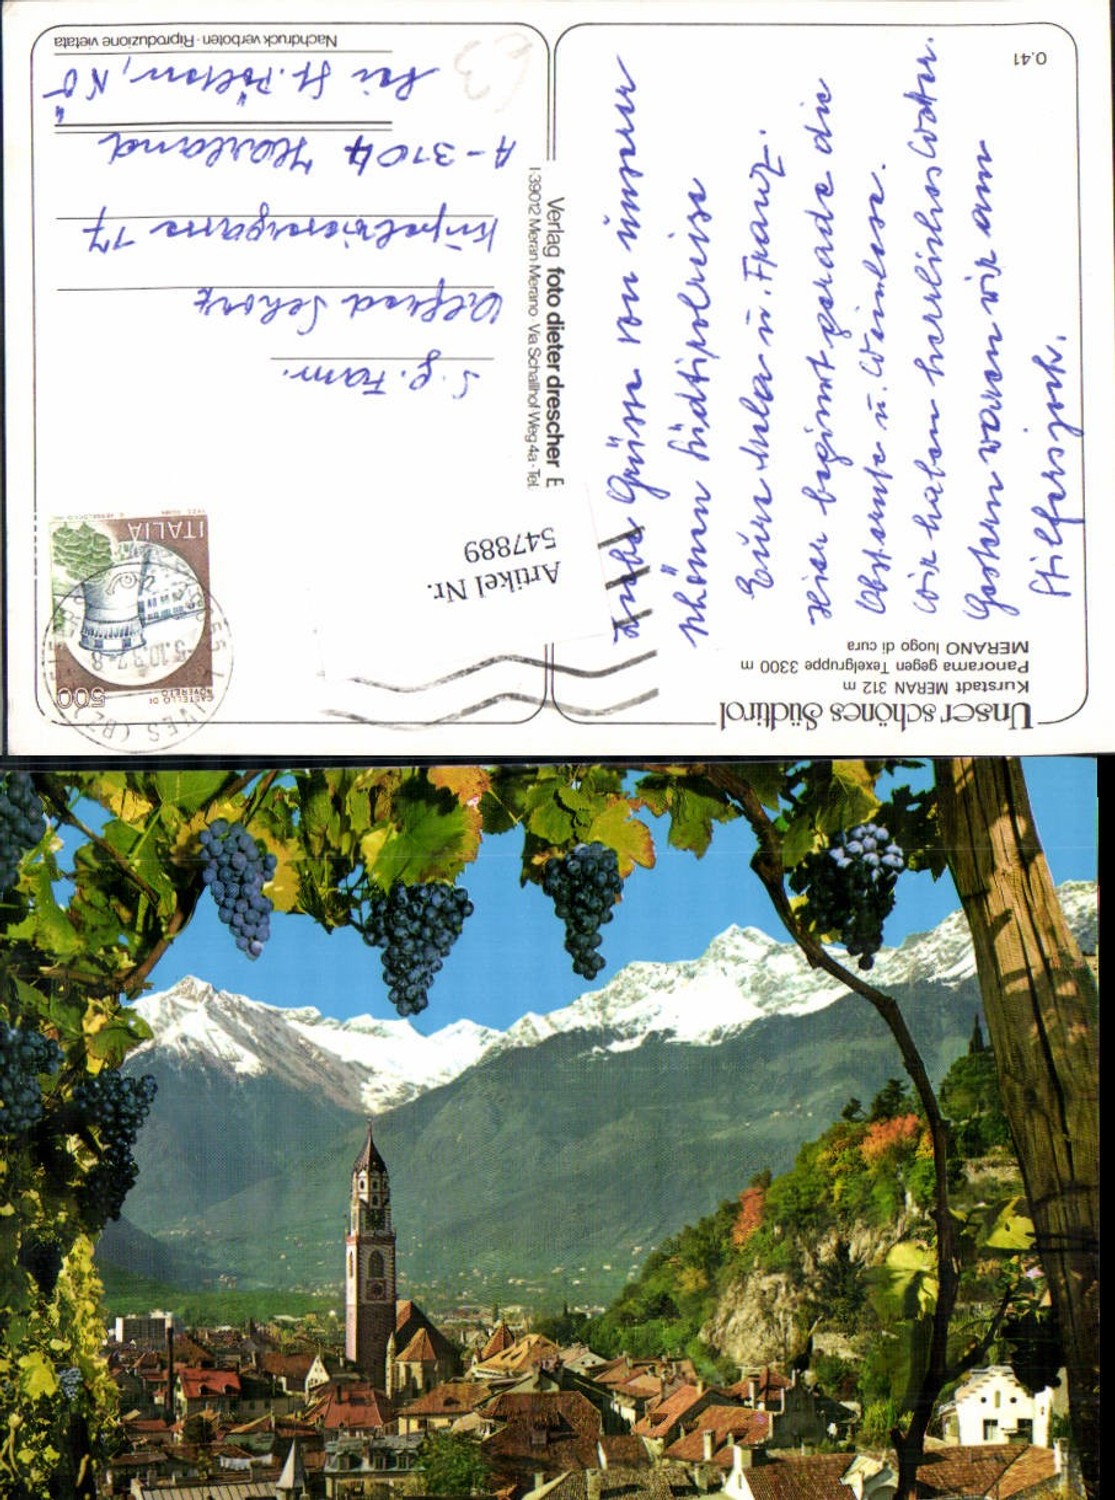 Unser schönes Südtirol
Kurstadt MERAN 312 m
Panorama gegen Texelgruppe 3300 m
MERANO luogo di cura
Liebe Grüsse von unserer
schönen Südtirolreise
Eure Hela u. Franz.
Hier beginnt gerade die
Obsternte u. Weinlese.
Wir haben herrliches Wetter.
Gestern waren wir am
Stilfserjoch.
0.41
Verlag foto dieter drescher E
I-39012 Meran-Merano Via Schallhof Weg 4a - Tel.
Artikel Nr.
547889
CASTELLO DI
ROVERETO
500
ITALIA
S.g. Fam.
Alfred Schörz
17
A-3104 Harland
bei St. Pölten, NÖ
Nachdruck verboten - Riproduzione vietata